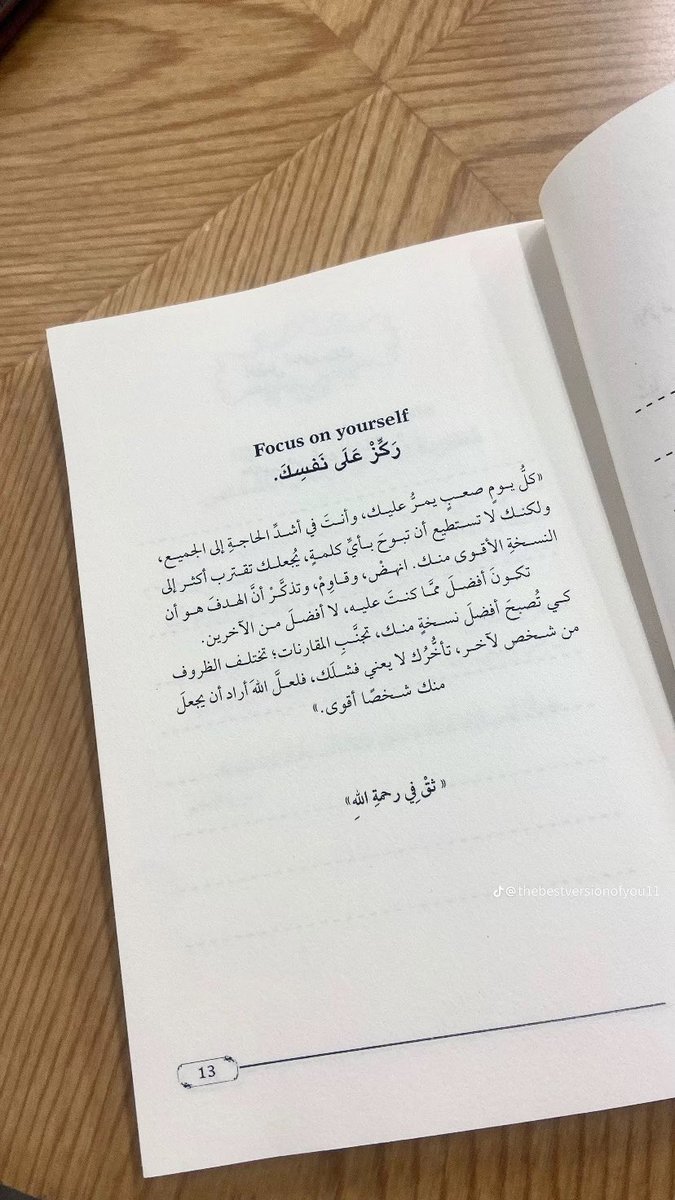 Focus on yourself
رَكِّزْ عَلَى نَفْسِكَ.
«كلُّ يومٍ صعبٍ يمرُّ عليك، وأنتَ في أشدِّ الحاجةِ إلى الجميع،
ولكنك لا تستطيع أن تبوحَ بأيِّ كلمةٍ، يُجعلك تقترب أكثر إلى
النسخةِ الأقوى منك. انهضْ، وقاوِمْ، وتذكَّرْ أنَّ الهدفَ هو أن
تكونَ أفضلَ ممَّا كنتَ عليه، لا أفضلَ من الآخرين.
كي تُصبحَ أفضلَ نسخةٍ منك، تجنَّبِ المقارنات؛ تختلف الظروف
من شخص لآخر، تأخُّرُك لا يعني فشلَك، فلعلَّ اللهَ أراد أن يجعلَ
منك شخصًا أقوى.»
«ثقْ فِي رحمةِ اللهِ»
@thebestversionofyou11
13